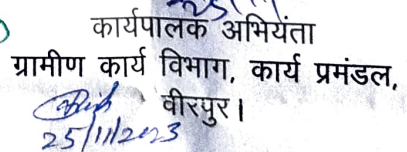 कार्यपालक अभियंता
ग्रामीण कार्य विभाग, कार्य प्रमंडल,
वीरपुर।
25/11/2023